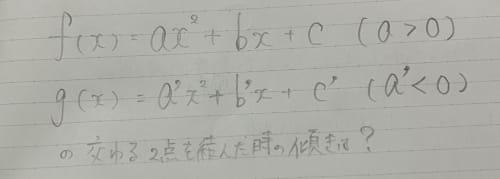 f(x) = ax² + bx + c (a > 0)
g(x) = a'x² + b'x + c' (a' < 0)
の交わる2点を結んだ時の傾きは?